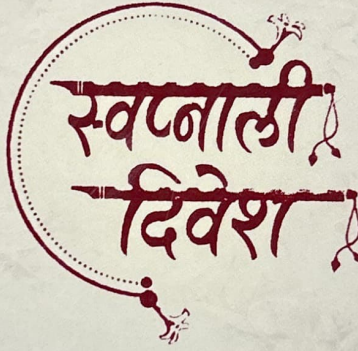 स्वप्नाली
दिवेश